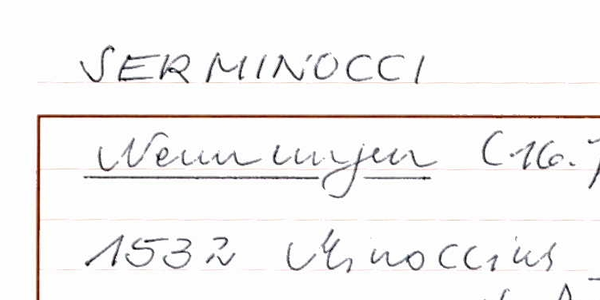 SERMINOCCI
Nennungen (16.
1532 Minoccius